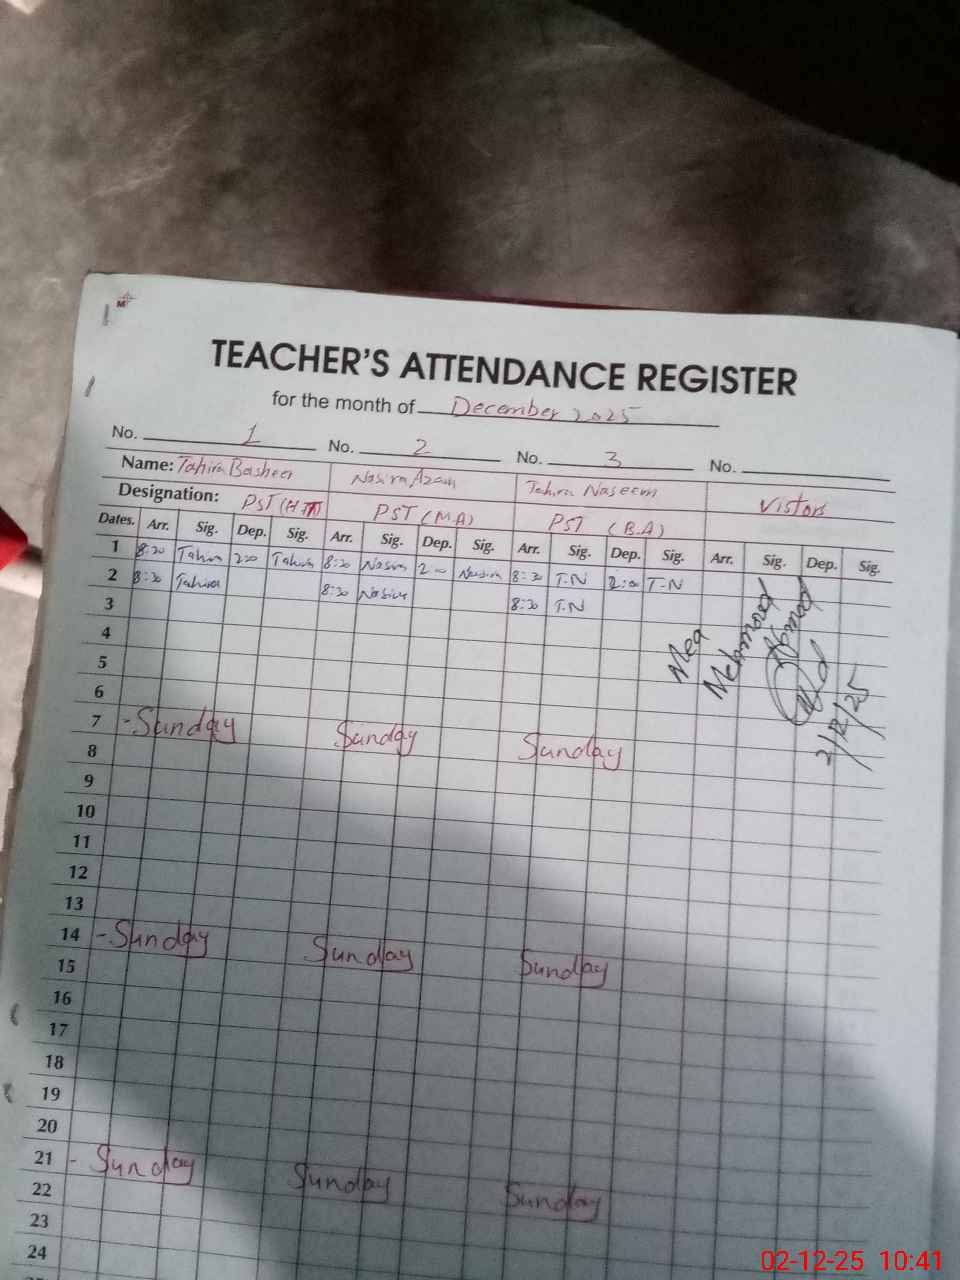 M
TEACHER'S ATTENDANCE REGISTER
for the month of December 2025
No. 1 No. 2 No. 3 No.
Name: Tahira Basheer Nasira Azam Tahira Naseem
Designation: PST (H.T) PST (M.A) PST (B.A) Vistors
Dates. Arr. Sig. Dep. Sig. Arr. Sig. Dep. Sig. Arr. Sig. Dep. Sig. Arr. Sig. Dep. Sig.
1 8:30 Tahira 2:00 Tahira 8:30 Nasira 2:00 Nasira 8:30 T.N 2:00 T-N
2 8:30 Tahira 8:30 Nasira 8:30 T.N
3
4
5
6
7 - Sunday Sunday Sunday
8
9
10
11
12
13
14 - Sunday Sunday Sunday
15
16
17
18
19
20
21 - Sunday Sunday Sunday
22
23
24
Mea
Mehmood
Ahmad
2/12/25
02-12-25 10:41